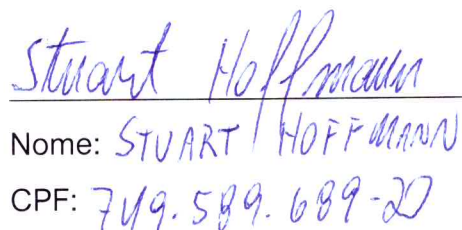 Stuart Hoffmann
Nome: STUART HOFFMANN
CPF: 749.589.689-20